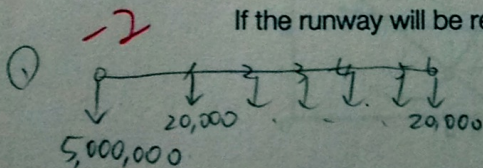 -2 If the runway will be re
① 0 1 2 3 4 5 6
20,000 . . . 20,000
5,000,000